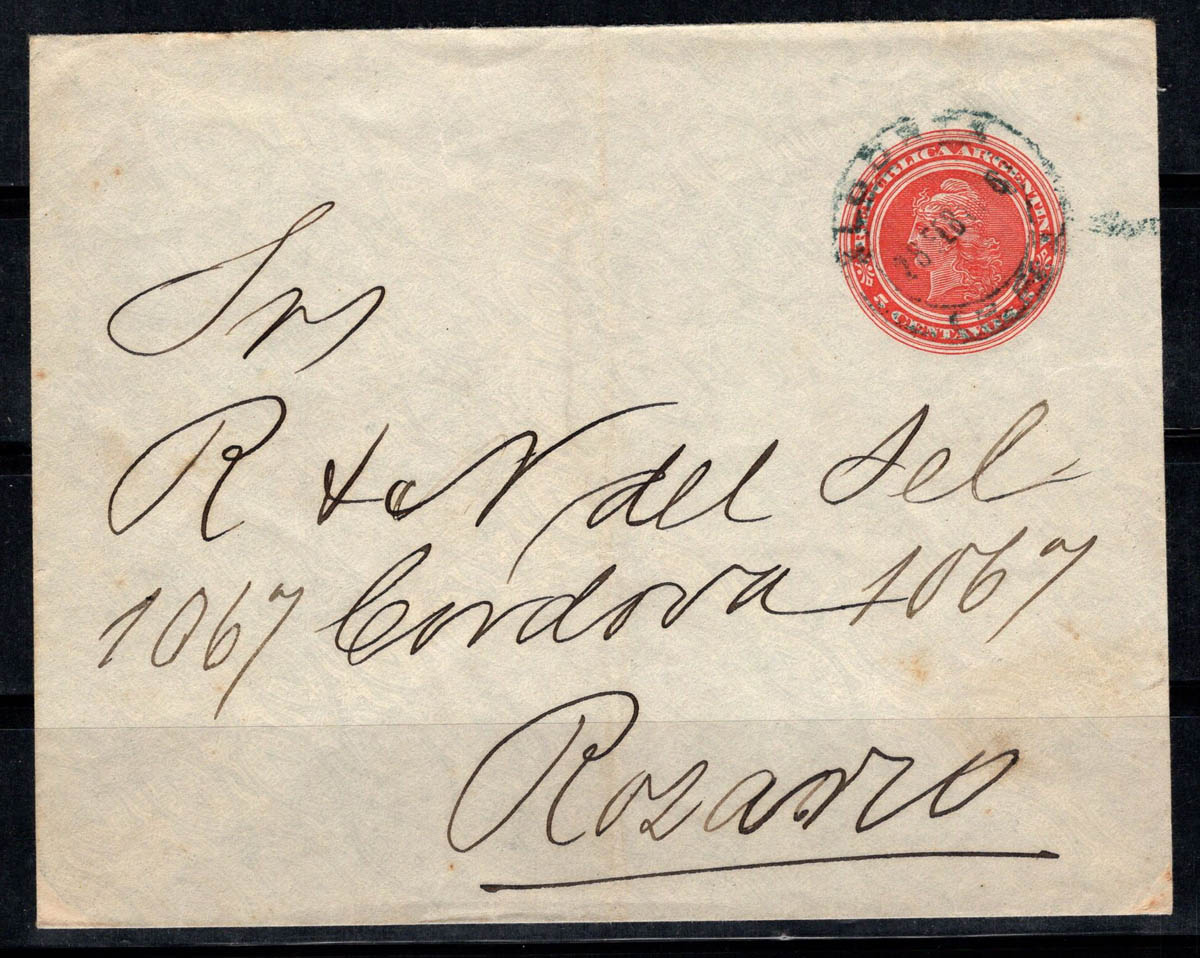 REPUBLICA ARGENTINA
5 CENTAVOS
Srs
R & N del Sel-
1067 Cordova 1067
Rozario